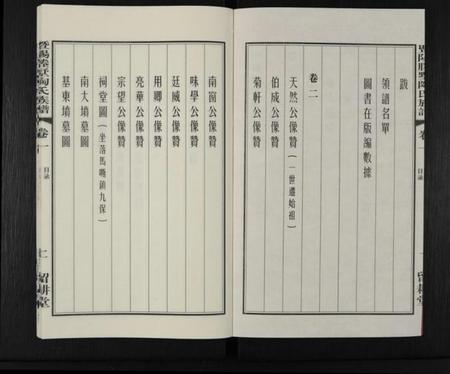 跋
領譜名單
圖書在版編數據
卷二
天然公像贊（一世遷始祖）
伯成公像贊
菊軒公像贊
卷一
目錄
南窗公像贊
味學公像贊
廷威公像贊
用卿公像贊
亮華公像贊
宗望公像贊
祠堂圖（坐落馬嘶鎮九保）
南大墳墓圖
基東墳墓圖
氏族譜
卷一
目錄
耕堂